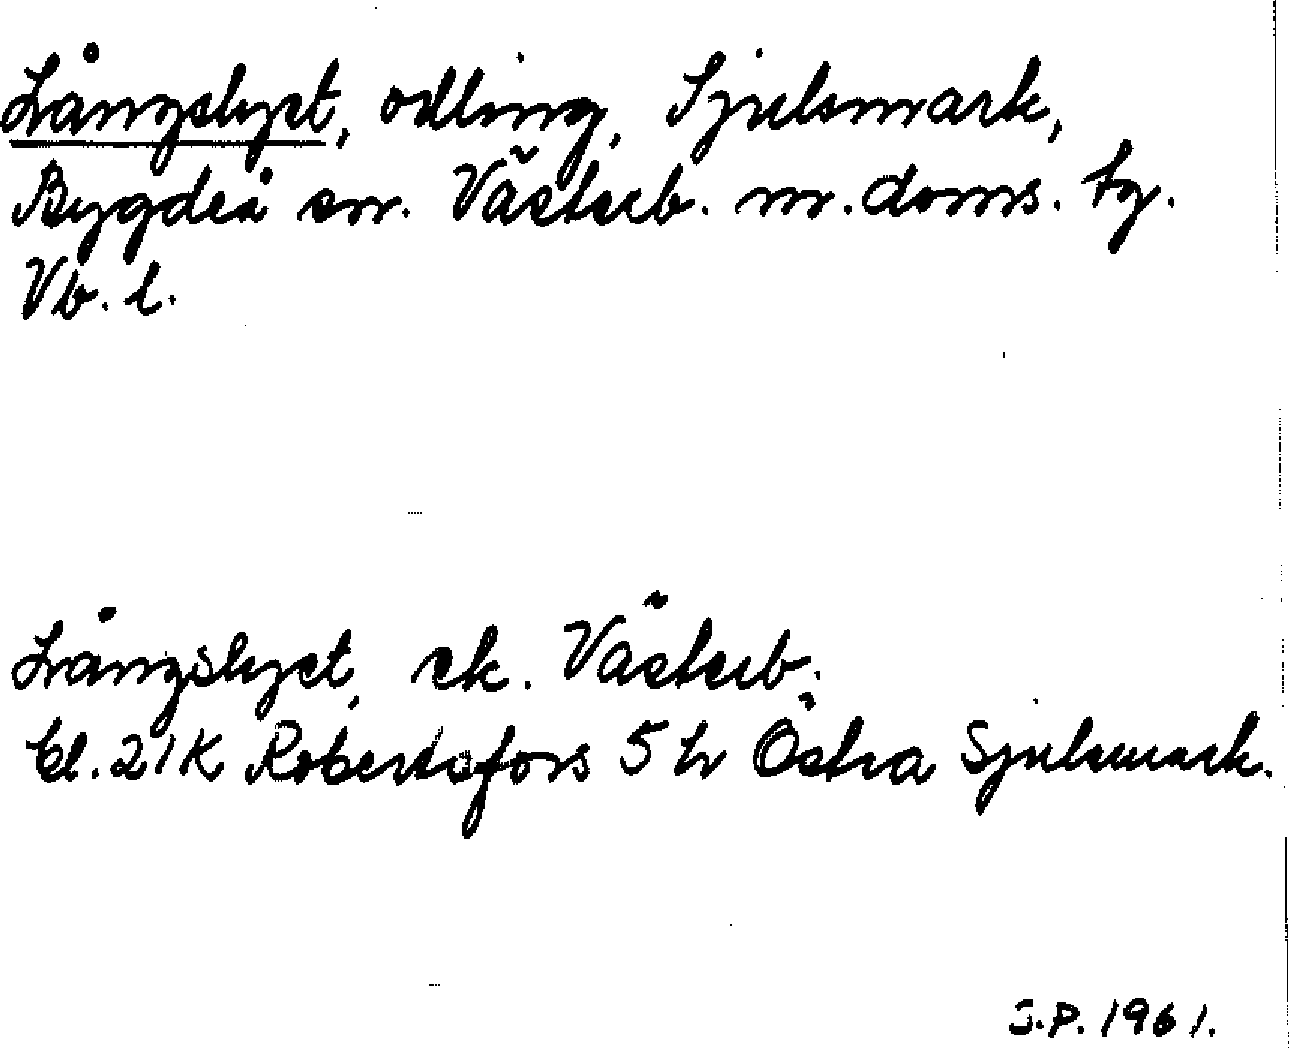 Långslyet, odling, Sjulsmark,
Bygdeå sn. Västerb. m. doms. tg.
Vb. l.
Långslyet, ek. Västerb.
bl. 21K Robertsfors 5 h Östra Sjulsmark.
J.P. 1961.